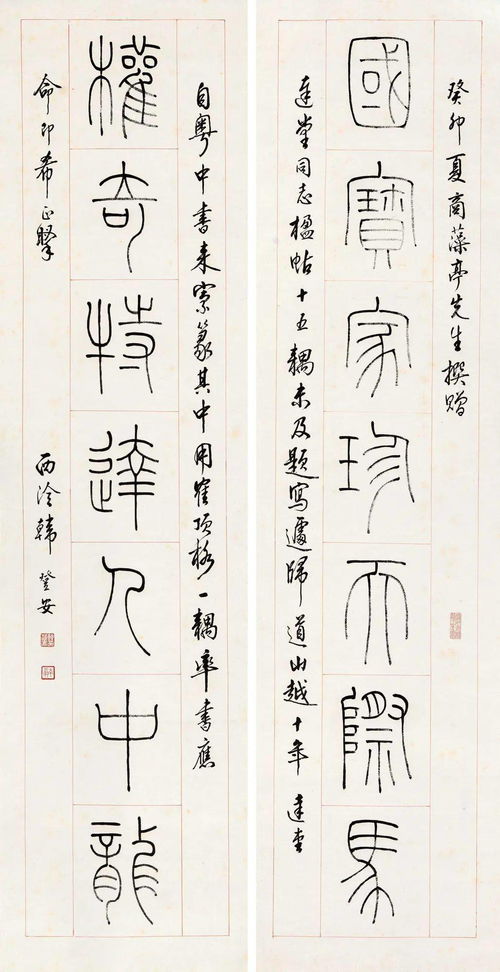 癸卯夏商藻亭先生撰贈
國寶家珍天際馬
達堂同志楹帖十五耦未及題寫遽歸道山越十年達堂
自粵中書来索篆其中用隺頂格一耦率書應
權奇特達人中龍
命即希正
西泠韓登安